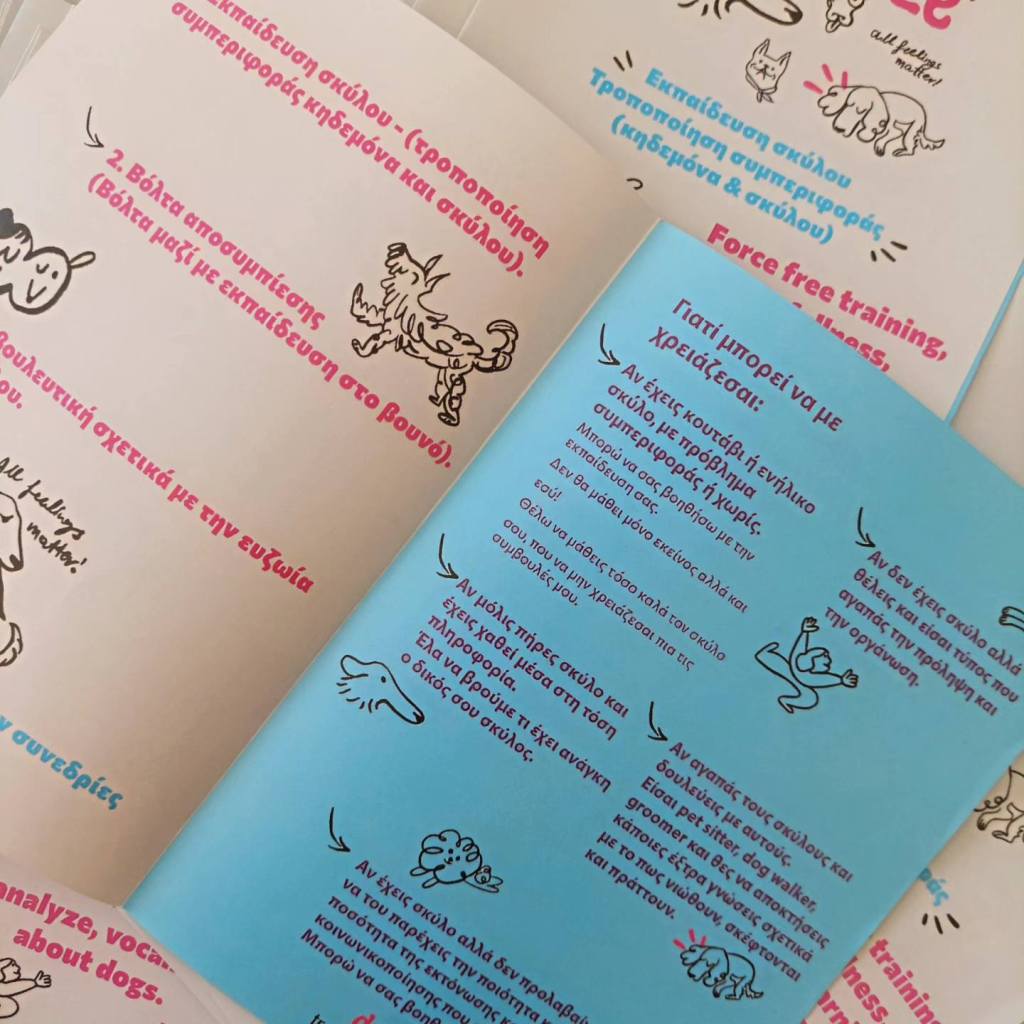 Εκπαίδευση σκύλου - (τροποποίηση
συμπεριφοράς κηδεμόνα και σκύλου).
2. Βόλτα αποσυμπίεσης
(Βόλτα μαζί με εκπαίδευση στο βουνό).
σχετικά με την ευζωία
All feelings
matter!
συνεδρίες
analyze,
about dogs.
all feelings
matter!
Εκπαίδευση σκύλου
Τροποποίηση συμπεριφοράς
(κηδεμόνα & σκύλου)
Force free training,
Γιατί μπορεί να με
χρειάζεσαι:
Αν έχεις κουτάβι ή ενήλικο
σκύλο, με πρόβλημα
συμπεριφοράς ή χωρίς.
Μπορώ να σας βοηθήσω με την
εκπαίδευση σας.
Δεν θα μάθει μόνο εκείνος αλλά και
εσύ!
Θέλω να μάθεις τόσο καλά τον σκύλο
σου, που να μην χρειάζεσαι πια τις
συμβουλές μου.
Αν μόλις πήρες σκύλο και
έχεις χαθεί μέσα στη τόση
πληροφορία.
Έλα να βρούμε τι έχει ανάγκη
ο δικός σου σκύλος.
Αν έχεις σκύλο αλλά δεν
να του παρέχεις την ποιότητα
ποσότητα της εκτόνωσης
κοινωνικοποίησης που
Μπορώ να σας
Αν δεν έχεις σκύλο αλλά
θέλεις και είσαι τύπος που
αγαπάς την πρόληψη και
την οργάνωση.
Αν αγαπάς τους σκύλους και
δουλεύεις με αυτούς.
Είσαι pet sitter, dog walker,
groomer και θες να αποκτήσεις
κάποιες έξτρα γνώσεις σχετικά
με το πως νιώθουν, σκέφτονται
και πράττουν.
training